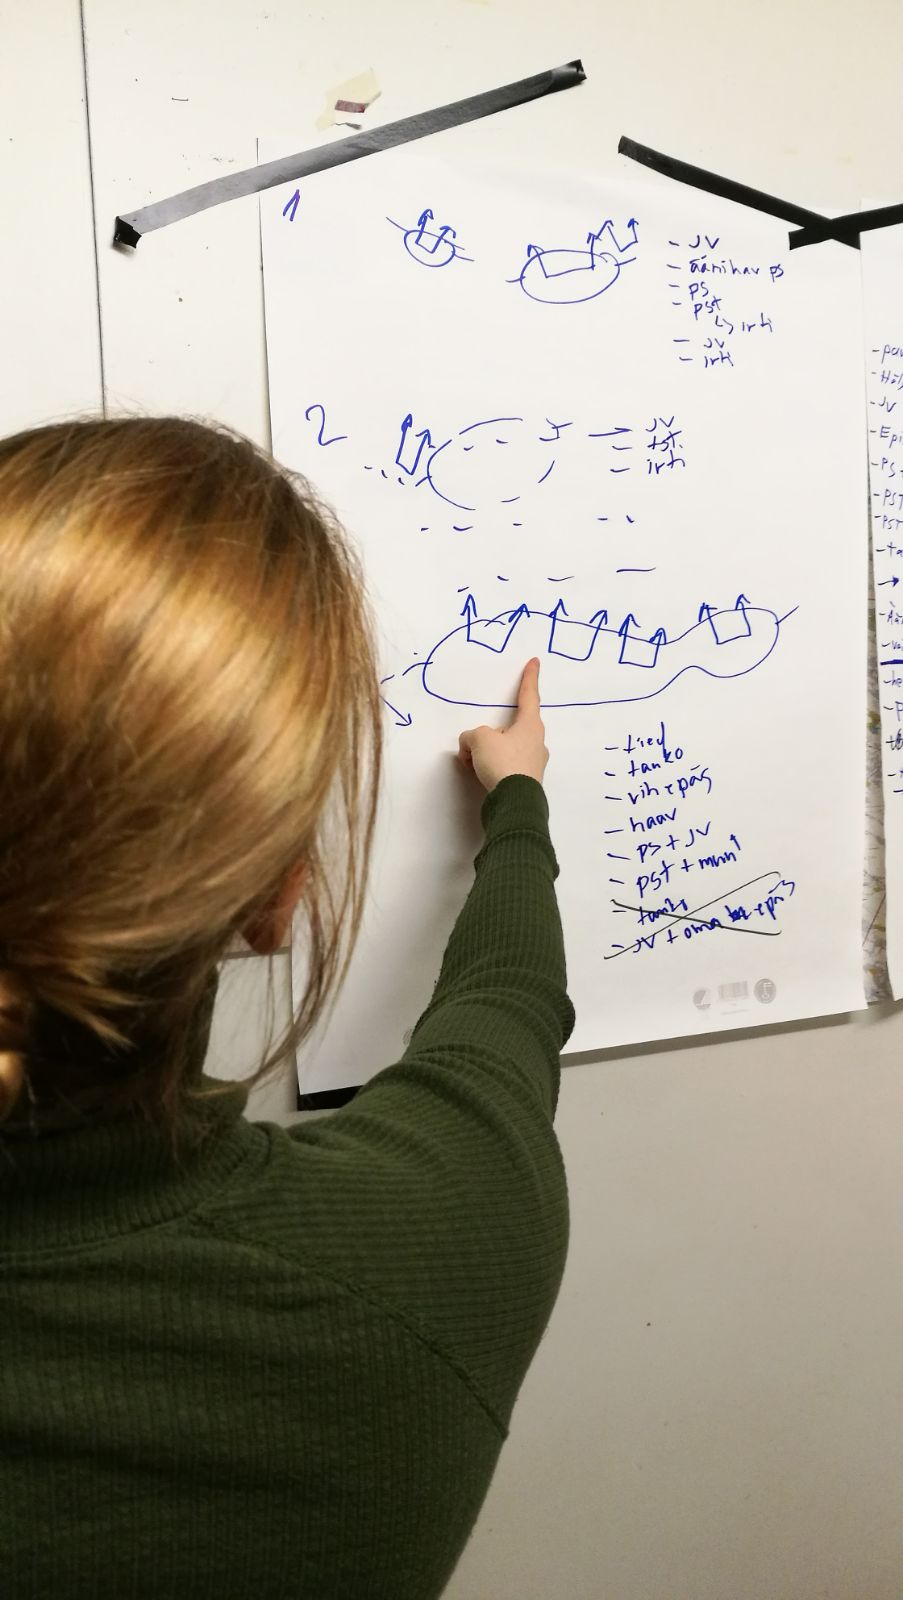 1
- JV
- äänihav ps
- ps
- pst
↳ irti
- JV
- irti
2
→ JV
- tst.
- irti
- tied
- tanko
- vih epäs
- haav
- ps + JV
- pst +
- tanko
- JV + oma epäs
- JV
- Epi
- PS
- PST
- PST
- ta